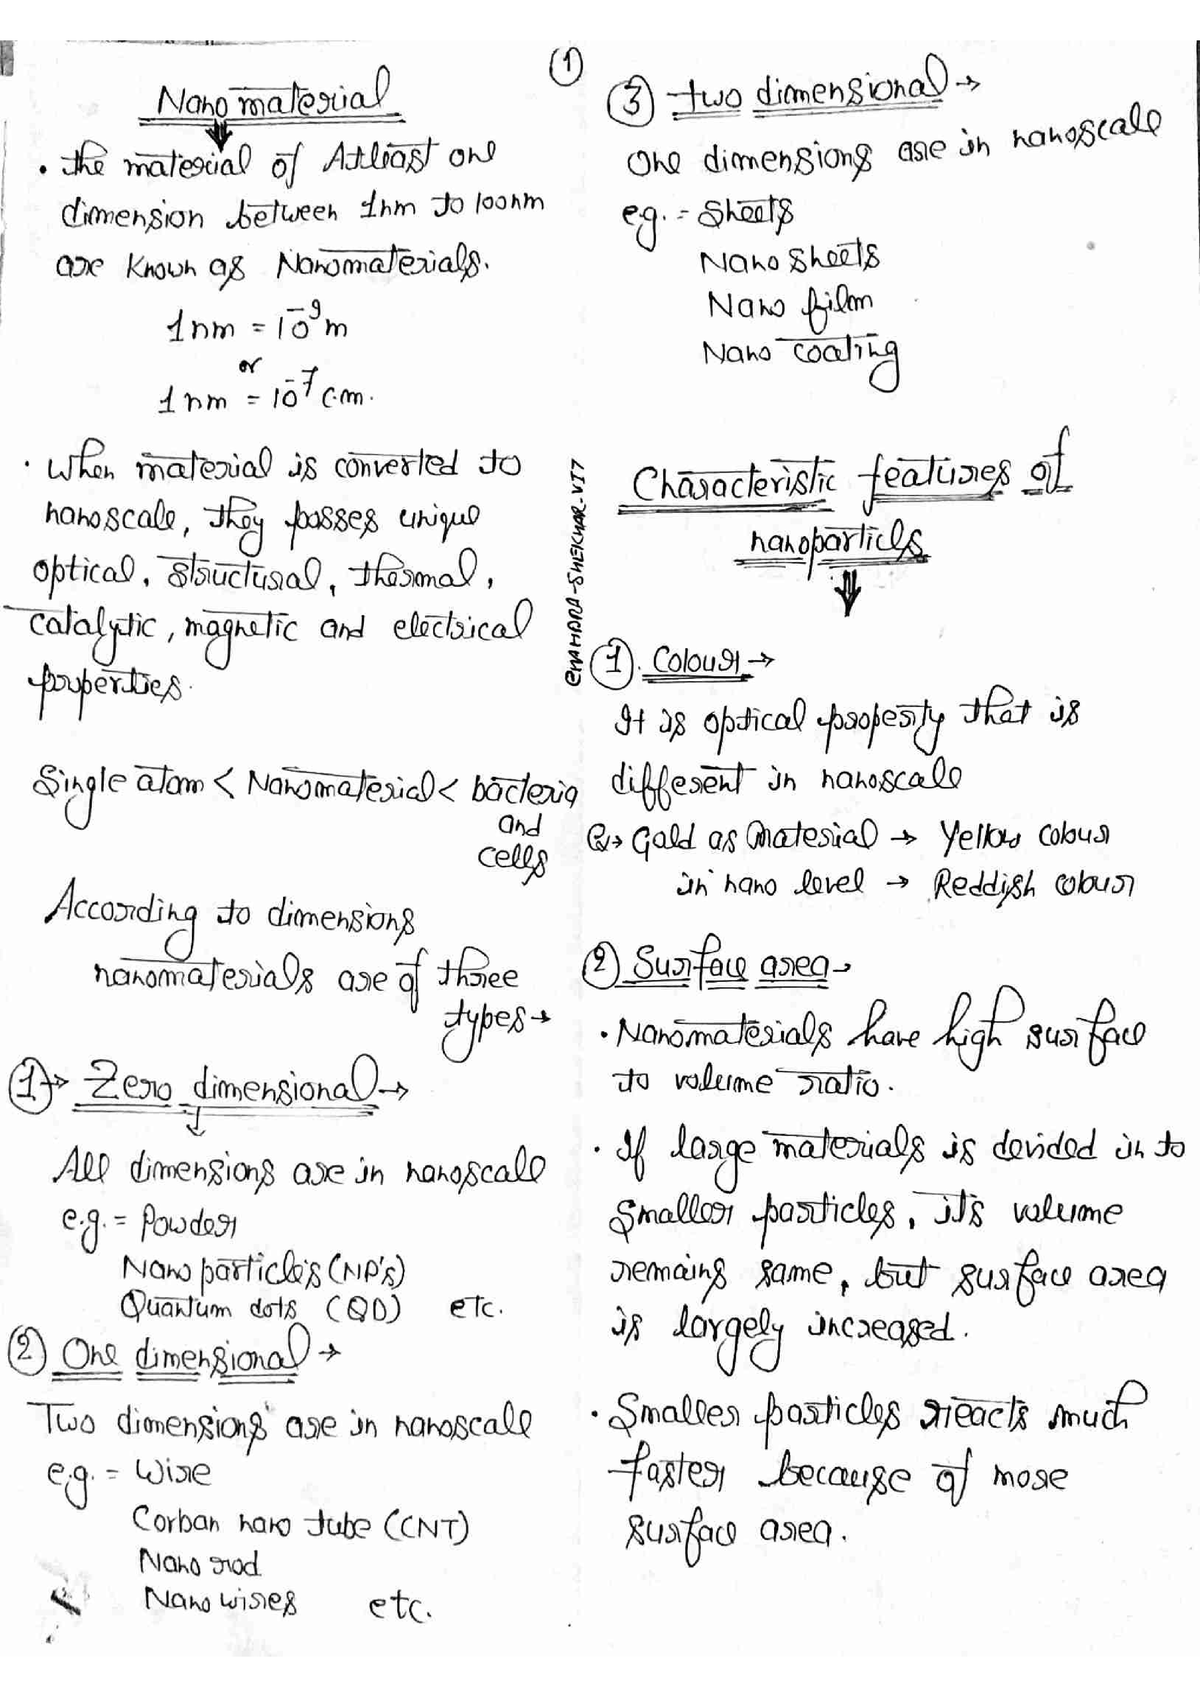 Nano material
• the material of Atleast one
dimension between 1nm to 100nm
are known as Nanomaterials.
1nm = 10⁻⁹m
or
1nm = 10⁻⁷c.m.
• When material is converted to
nanoscale, they posses unique
optical, structural, thermal,
catalytic, magnetic and electrical
properties.
Single atom < Nanomaterial < bacteria
and
cells
According to dimensions
nanomaterials are of three
types→
1→ Zero dimensional→
All dimensions are in nanoscale
e.g. = Powder
Nano particle's (NP's)
Quantum dots (QD) etc.
2 One dimensional→
Two dimensions are in nanoscale
e.g. = Wire
Corban nano tube (CNT)
Nano rod
Nano wires etc.
1
CHANDRA-SHEKHAR_VI7
3 two dimensional→
One dimensions are in nanoscale
e.g. = Sheets
Nano sheets
Nano film
Nano coating
Characteristic features of
nanoparticls
1. Colour→
It is optical property that is
different in nanoscale
e→ Gold as material → Yellow colour
in nano level → Reddish colour
2 Surface area→
• Nanomaterials have high surface
to volume ratio.
• If large materials is devided in to
smaller particles, it's volume
remains same, but surface area
is largely increased.
• Smaller particles reacts much
faster because of more
surface area.